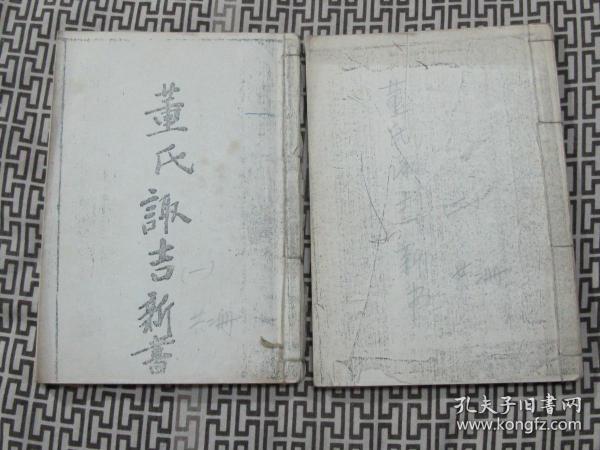 董氏諏吉新書
(一)
二册
董氏諏吉新书
二
共册
孔夫子旧书网
www.kongfz.com